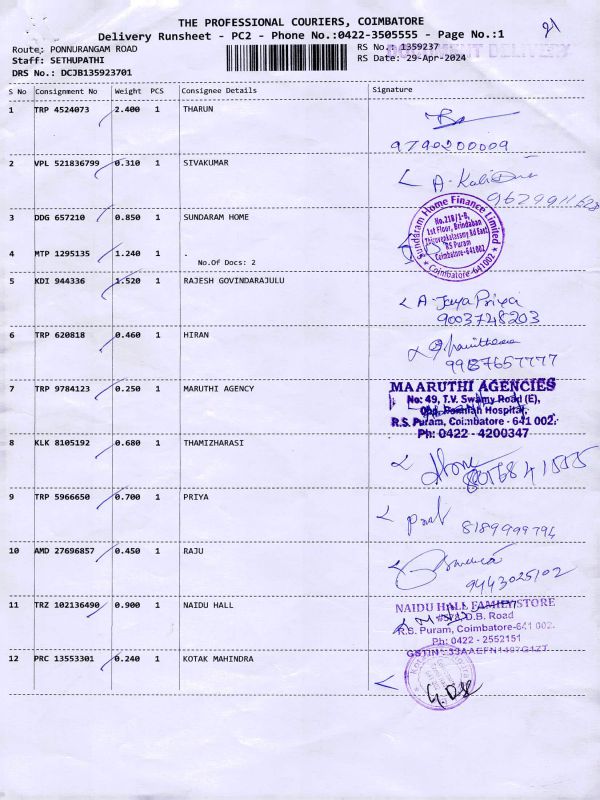 THE PROFESSIONAL COURIERS, COIMBATORE
Delivery Runsheet - PC2 - Phone No.:0422-3505555 - Page No.:1
21
Route: PONNURANGAM ROAD
RS No.: 1359237
Staff: SETHUPATHI
RS Date: 29-Apr-2024
DRS No.: DCJB135923701
S No Consignment No Weight PCS Consignee Details Signature
1 TRP 4524073 2.400 1 THARUN
9790200009
2 VPL 521836799 0.310 1 SIVAKUMAR
A-Kali
3 DDG 657210 0.850 1 SUNDARAM HOME
Sundaram Home Finance Limited
No.21B/1-B,
1st Floor, Brindaban
Thiruvenkatasamy Rd East
RS Puram
Coimbatore-641002
Coimbatore-641002
4 MTP 1295135 1.240 1 .
No.Of Docs: 2
5 KDI 944336 1.520 1 RAJESH GOVINDARAJULU
A-Jaya Priya
9003748203
6 TRP 620818 0.460 1 HIRAN
9987657777
7 TRP 9784123 0.250 1 MARUTHI AGENCY
MAARUTHI AGENCIES
No: 49, T.V. Swamy Road (E),
Hospital,
R.S. Puram, Coimbatore - 641 002.
Ph: 0422 - 4200347
8 KLK 8105192 0.680 1 THAMIZHARASI
9 TRP 5966650 0.700 1 PRIYA
8189999794
10 AMD 27696857 0.450 1 RAJU
9443025102
11 TRZ 102136490 0.900 1 NAIDU HALL
NAIDU HALL FAMILY STORE
D.B. Road
R.S. Puram, Coimbatore-641 002.
Ph: 0422 - 2552151
12 PRC 13553301 0.240 1 KOTAK MAHINDRA